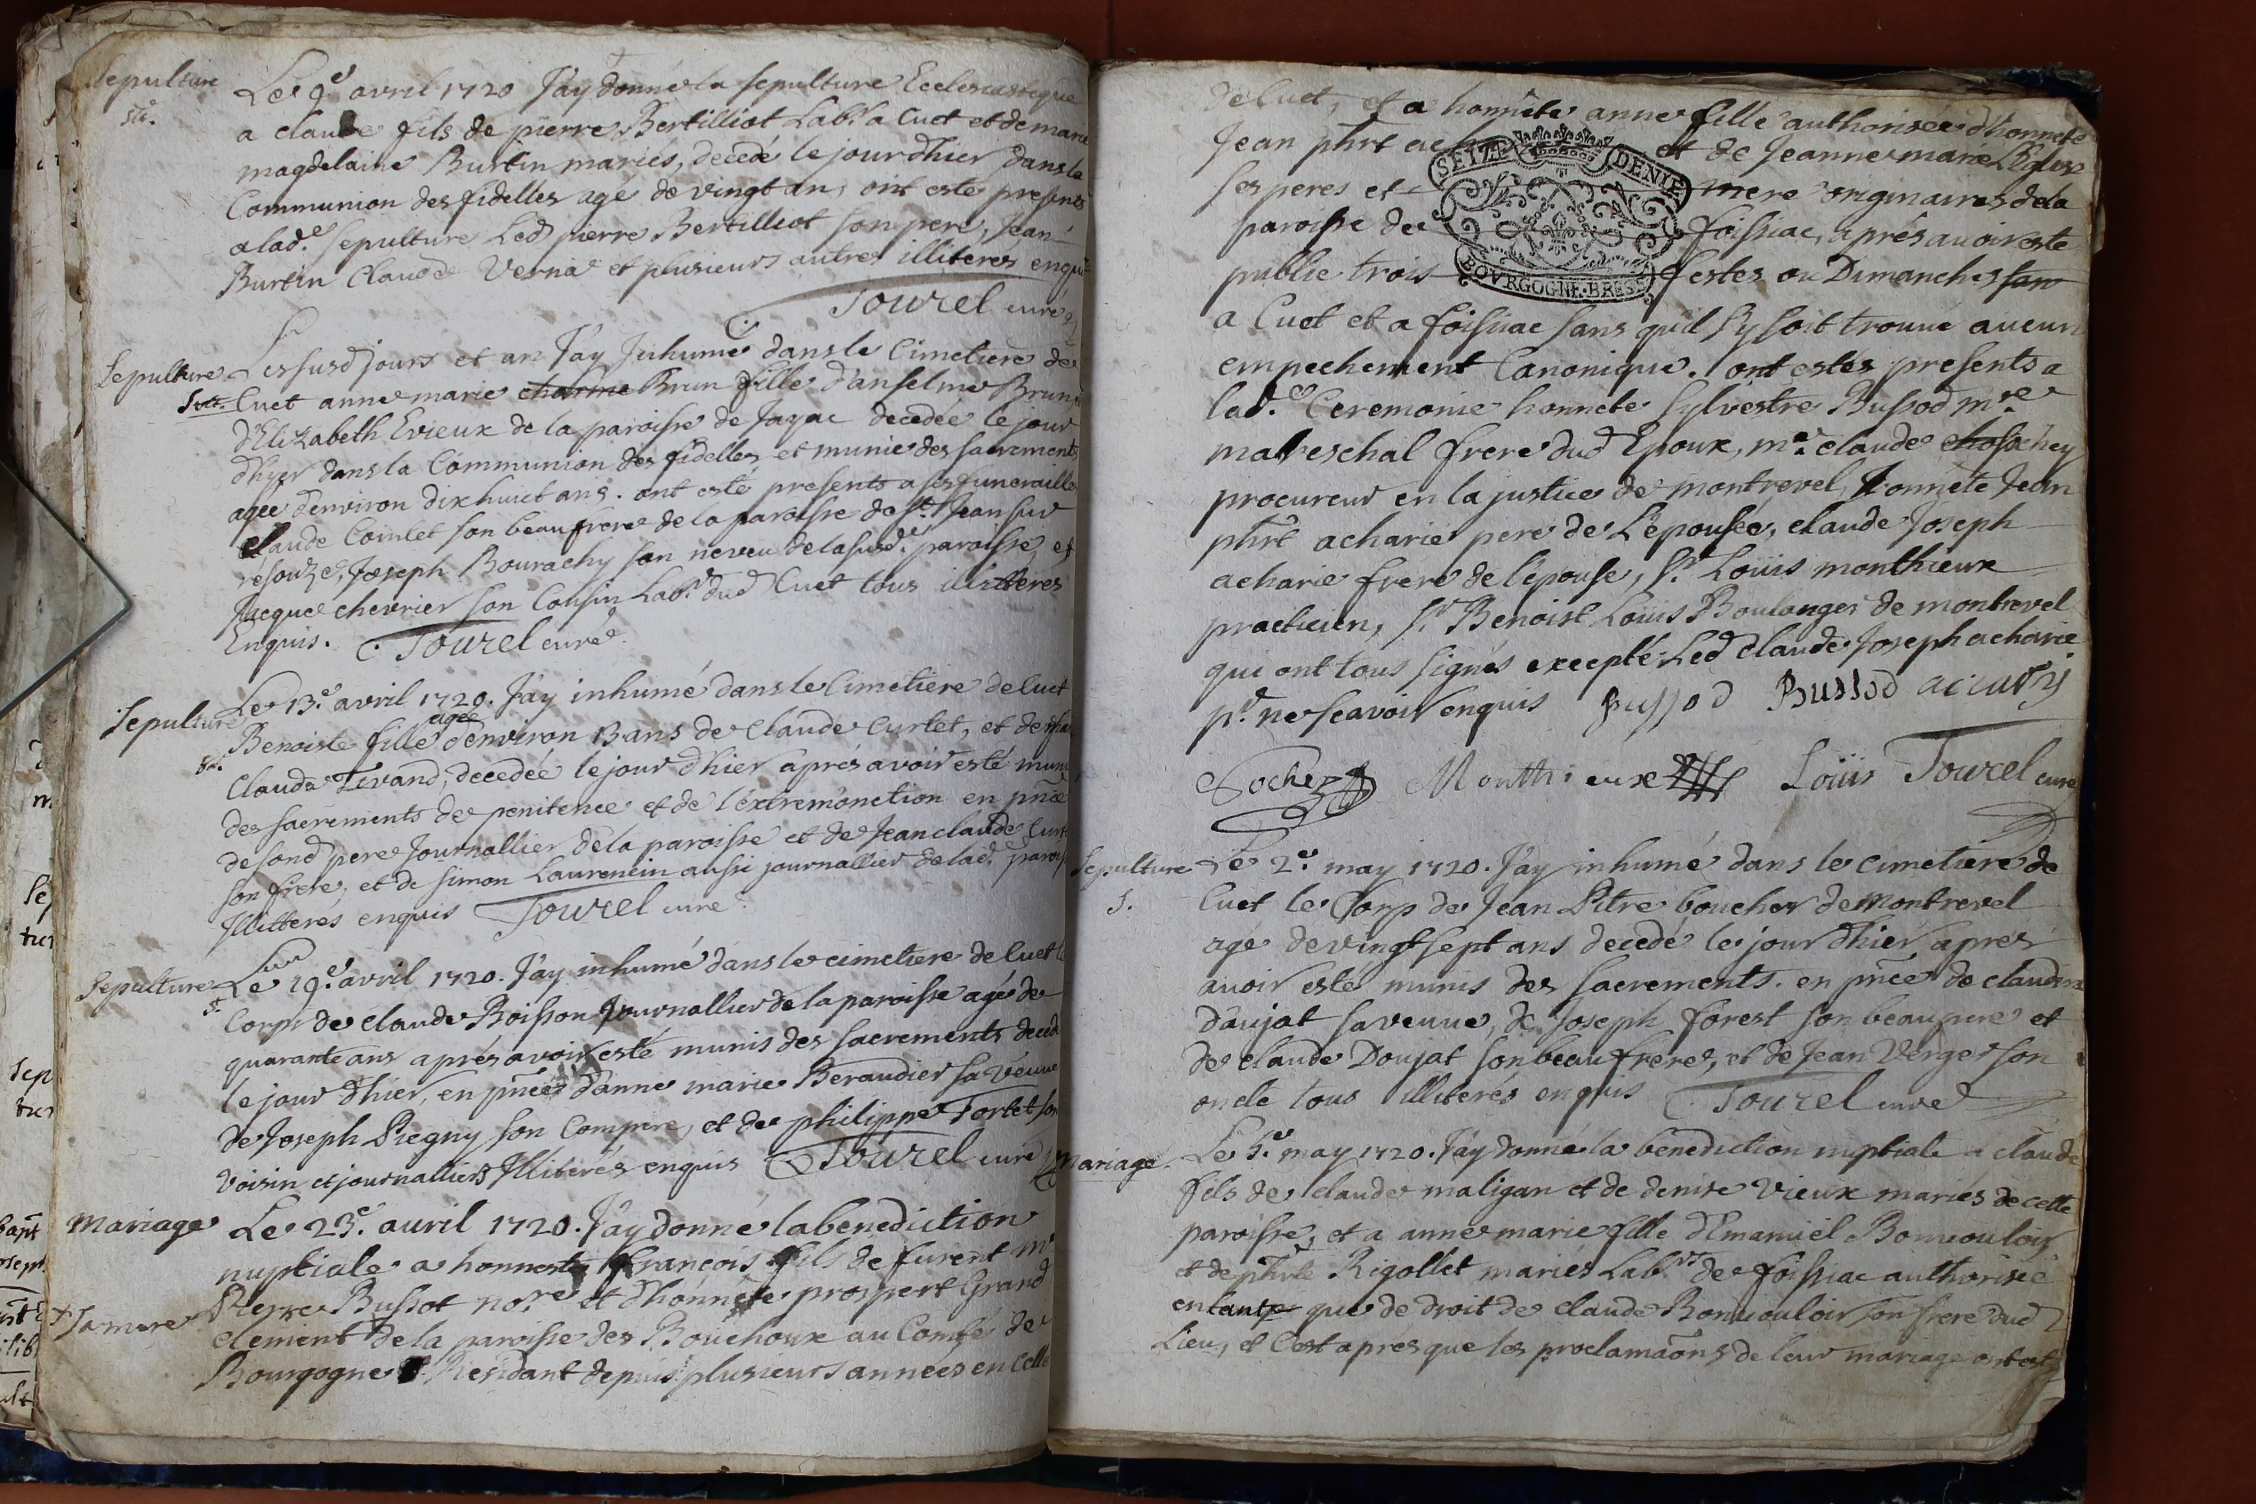 Sepulture
Le 9e avril 1720 J'ay donné la sepulture Ecclesiastique
a claude fils de pierre Bertilliot Labr a Cuet et de marie
magdelaine Burtin mariés, decedé le jour d'hier dans la
Communion des fidelles agé de vingt ans ont esté presents
a lad.e sepulture Led pierre Bertilliot son pere, Jean
Burtin Claude Verna et plusieurs autres illiteres enquis
Tourel curé
Sepulture
Les susd jours et an J'ay Inhumé dans le Cimetiere de
Cuet anne marie charme Brun fille d'anselme Brun
d'Elizabeth Evieux de la paroisse de Jayac decedée le jour
d'hyer dans la Communion des fidelles et munie des sacrements
agée d'environ dixhuict ans. ont esté presents a ses funerailles
claude Cointet son beaufrere de la paroisse de St Jean sur
résouze, Joseph Bourachy son neveu de la susd.e paroisse, et
Jacque chevrier son Cousin Labr dud Cuet tous illitteres
Enquis. Tourel curé
Sepulture
Le 13.e avril 1720. J'ay inhumé dans le Cimetiere de Cuet
agée
Benoiste fille d'environ 13 ans de Claude Curtet, et de
Clauda Tivand, decedée le jour d'hier aprés avoir esté munie
des sacrements de penitence et de l'extremonction en pnce
de sond pere Journallier de la paroisse et de Jean claude Curtet
son frere, et de simon Laurencin aussi journallier de lad. paroisse
Illitteres enquis Tourel curé
Sepulture
Le 19.e avril 1720. J'ay inhumé dans le cimetiere de Cuet le
Corps de claude Boisson Journallier de la paroisse agé de
quarante ans aprés avoir esté munis des sacrements decedé
le jour d'hier, en pnce d'anne marie Beraudier sa veuve
de Joseph Piegny son Compere, et de philippe Tortet son
voisin et journalliers Illiterés enquis Tourel curé
mariage
Le 23.e avril 1720. J'ay donné la benediction
nuptiale a honneste françois fils de furent Mr
Pierre Bussot nore et d'honnéte prospert Grand
+ sa mere
clement de la paroisse des Bouchoux au Comté de
Bourgogne Residant depuis plusieurs années en celle
de Cuet, et a honnéte anne fille authorisée d'honnete
Jean phrt et de Jeanne marie
ses peres et mere originaires de la
paroisse de foissiac, aprés avoir esté
publié trois festes ou Dimanches
SEIZE DENIE
BOVRGOGNE·BRESSE
a Cuet et a foissiac sans qu'il sy soit trouvé aucun
empechement Canonique. ont estés presents a
lad.e Ceremonie honnete sylvestre Bussod mre
mareschal frere dud Epoux, me claude chossochey
procureur en la justice de montrevel, honnete Jean
phrt acharie pere de L'épousée, claude Joseph
acharie frere de l'épouse, Sr Loüis monthieux
practicien, Sr Benoist Loüis Boulanger de montrevel
qui ont tous signés excepté Led claude Joseph acharie
pt ne scavoir enquis Bussod Bussod
Cochey Monthieuxe Loüis Tourel curé
Sepulture
Le 2.e may 1720. J'ay inhumé dans le cimetiere de
Cuet le Corp de Jean Pitre boucher de montrevel
agé de vingt sept ans decedé le jour d'hier apres
avoir esté munis des sacrements. en pnce de claudine
Daujat sa veuve, de Joseph forest son beaupere et
de claude Doujat son beau frere, et de Jean Verger son
oncle tous illiterés enquis Tourel curé
mariage
Le 5.e may 1720. J'ay donné la benediction nuptiale a claude
fils de claude maligan et de denise Vieux mariés de cette
paroisse, et a anne marie fille d'Emanuël Bonvouloir
et de phrte Rigollet mariés Labrs de foissiac authorisée
entant que de droit de claude Bonvouloir son frere dud
Lieu, et C'est apres que les proclamaôns de leur mariage ont esté